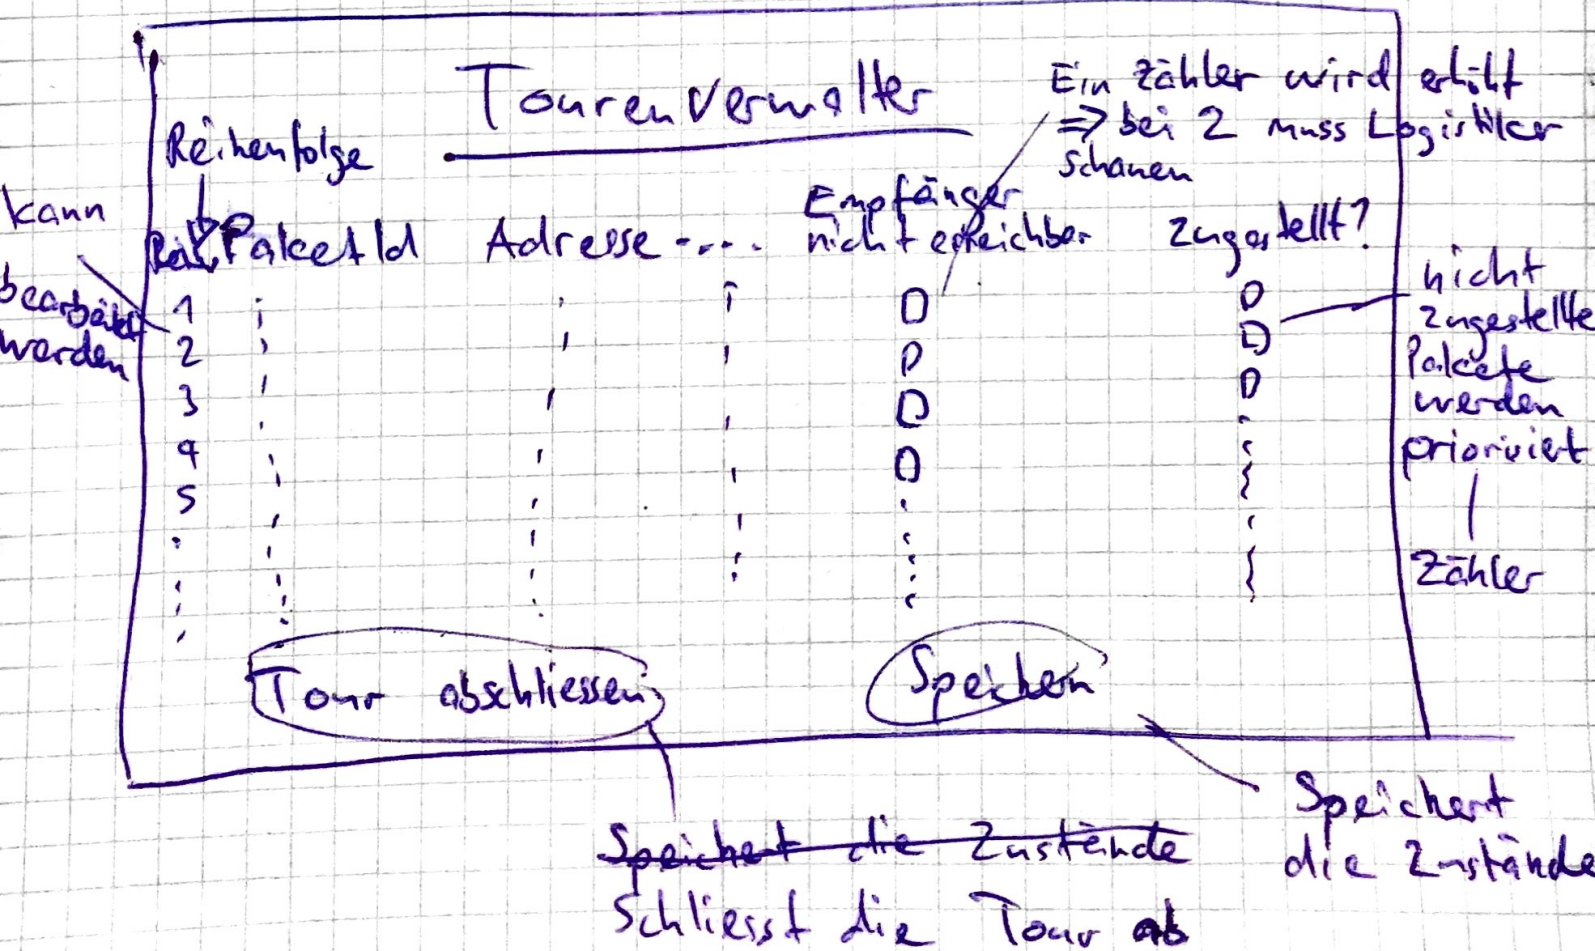 Tourenverwalter
Ein Zähler wird erhöht
=> bei 2 muss Logistiker
schauen
Reihenfolge
kann
bearbeitet
werden
PaketId Adresse ---. Empfänger
nicht erreichbar zugestellt?
1
2
3
4
5
nicht
zugestellte
Pakete
werden
prioriviert
Zähler
Tour abschliessen
Speichern
Speichert die Zustände
Schliesst die Tour ab
Speichert
die Zustände